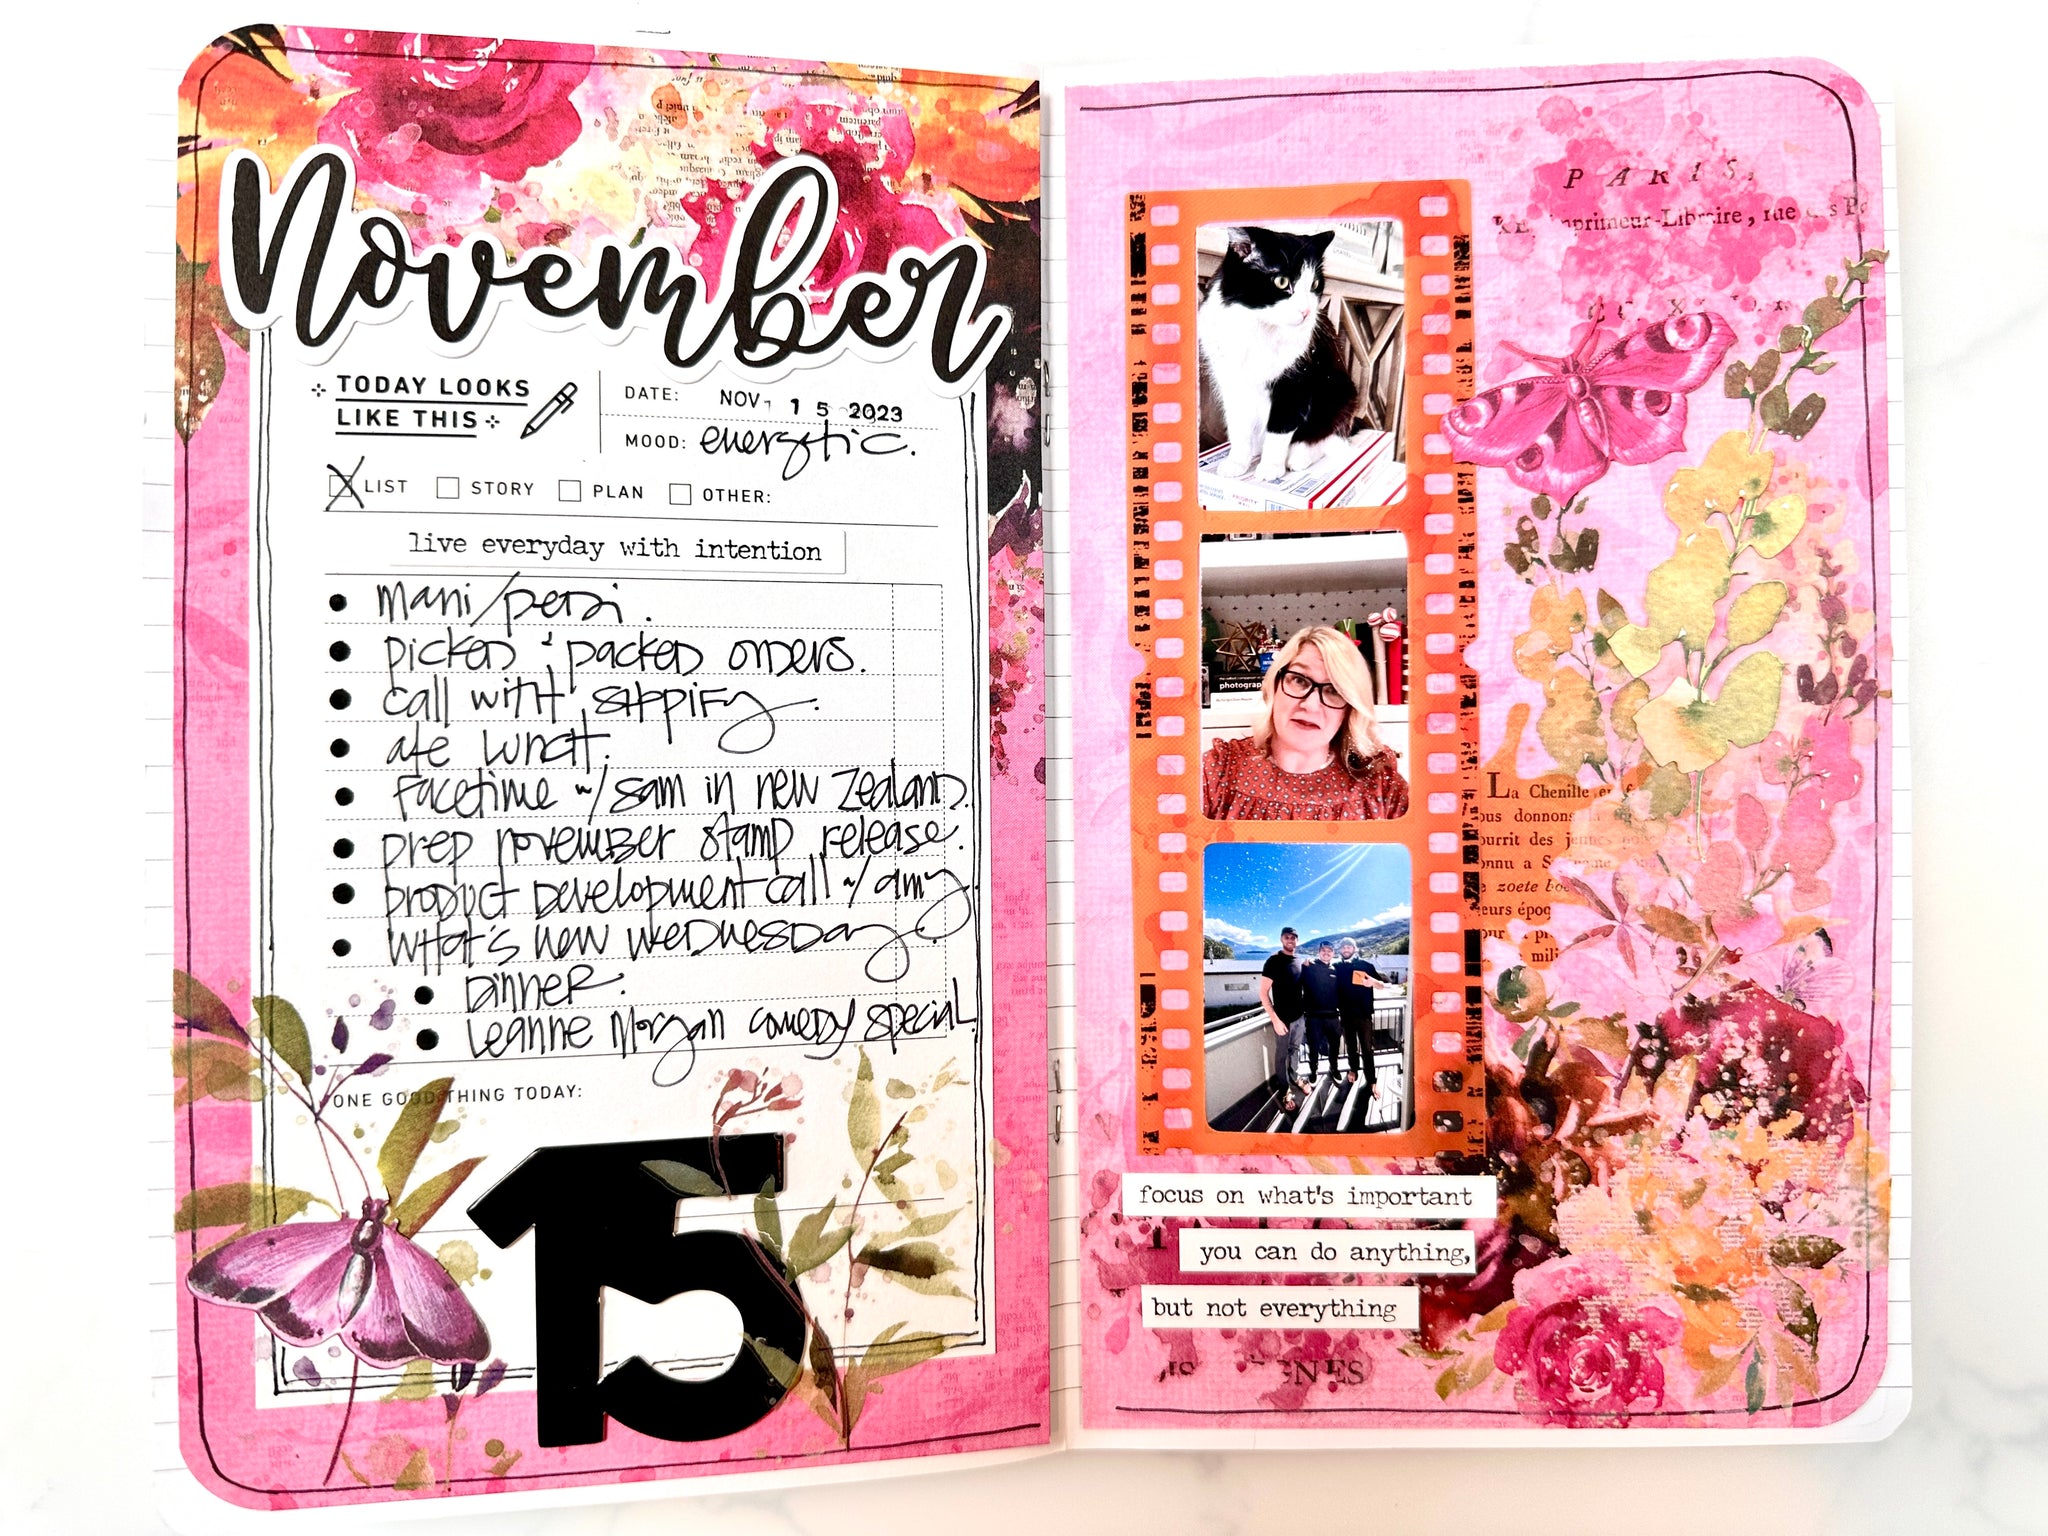 November
TODAY LOOKS
LIKE THIS
DATE: NOV 15 2023
MOOD: energetic.
LIST STORY PLAN OTHER:
live everyday with intention
mani/pedi.
picked & packed orders.
call with shppify.
ate lunch.
facetime w/ sam in new zealand.
prep november stamp release.
product development call w/ amy.
what's new wednesday.
dinner.
leanne morgan comedy special.
ONE GOOD THING TODAY:
15
PARIS,
imprimeur-Libraire, rue
photograp
La Chenille
donnons
des
zoete
époq
mili
focus on what's important
you can do anything,
but not everything